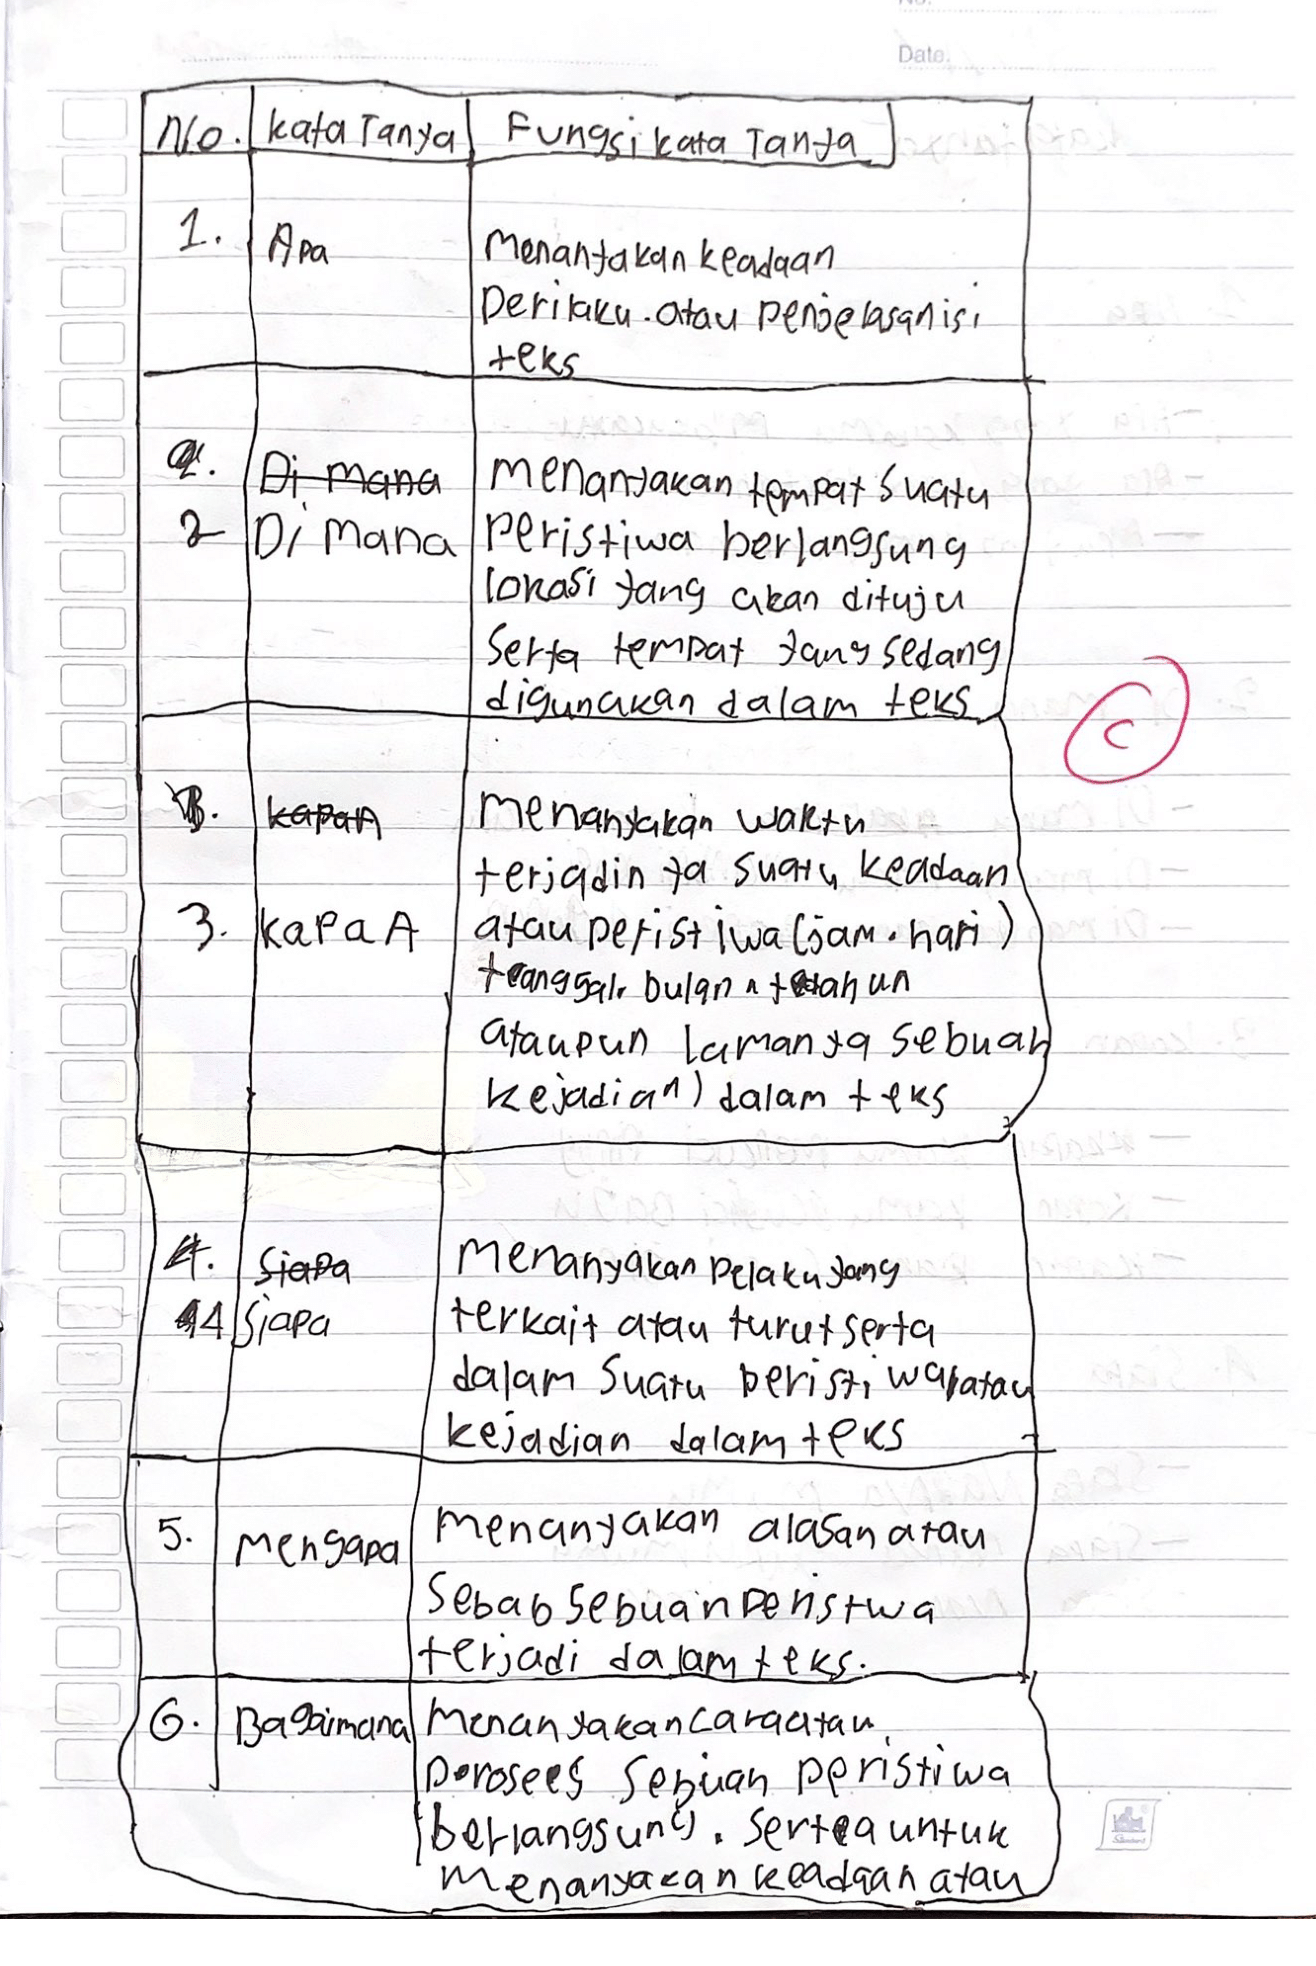 No.
Date.
No. Kata Tanya Fungsi kata Tanya
1. Apa Menanyakan keadaan
Perilaku. atau Penjelasan isi
teks
2. Di mana menanyakan tempat suatu
2 Di mana peristiwa berlangsung
lokasi yang akan dituju
Serta tempat yang sedang
digunakan dalam teks
C
3. kapan menanyakan waktu
terjadin ya suatu keadaan
3. kapan atau peristiwa (jam. hari)
tanggal, bulan, tahun
ataupun lamanya sebuah
kejadian) dalam teks
4. Siapa Menanyakan Pelaku yang
4 Siapa terkait atau turut serta
dalam Suatu peristiwa, atau
kejadian dalam teks
5. mengapa menanyakan alasan atau
Sebab Sebuah Peristwa
terjadi dalam teks.
6. Bagaimana Menanyakan cara atau
Porosees Sebuah peristiwa
berlangsung. Sertea untuk
menanyakan keadaan atau